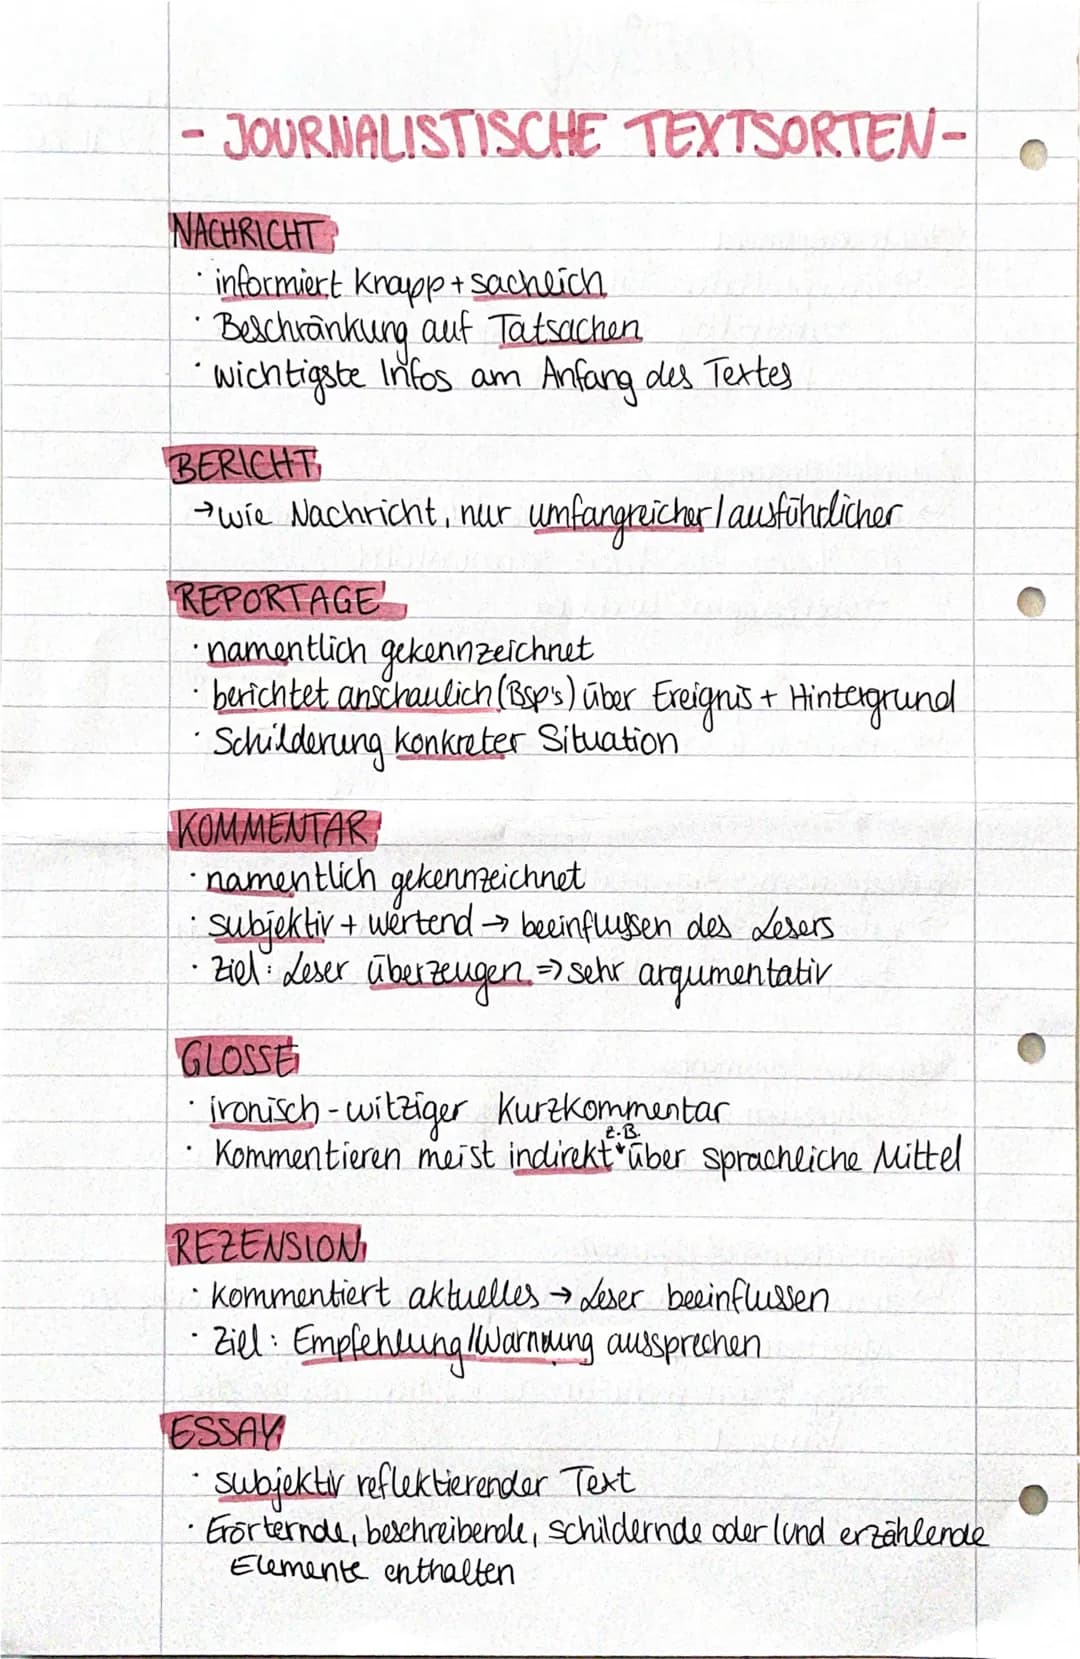 - JOURNALISTISCHE TEXTSORTEN -
NACHRICHT
· informiert knapp + sachlich
· Beschränkung auf Tatsachen
· wichtigste Infos am Anfang des Textes
BERICHT
→ wie Nachricht, nur umfangreicher / ausführlicher
REPORTAGE
· namentlich gekennzeichnet
· berichtet anschaulich (Bsp's) über Ereignis + Hintergrund
· Schilderung konkreter Situation
KOMMENTAR
· namentlich gekennzeichnet
· subjektiv + wertend → beeinflussen des Lesers
· Ziel: Leser überzeugen => sehr argumentativ
GLOSSE
· ironisch - witziger Kurzkommentar
z.B.
· Kommentieren meist indirekt über sprachliche Mittel
REZENSION
· kommentiert aktuelles → Leser beeinflussen
· Ziel: Empfehlung/Warnung aussprechen
ESSAY
· subjektiv reflektierender Text
· Erörternde, beschreibende, schildernde oder/und erzählende
Elemente enthalten